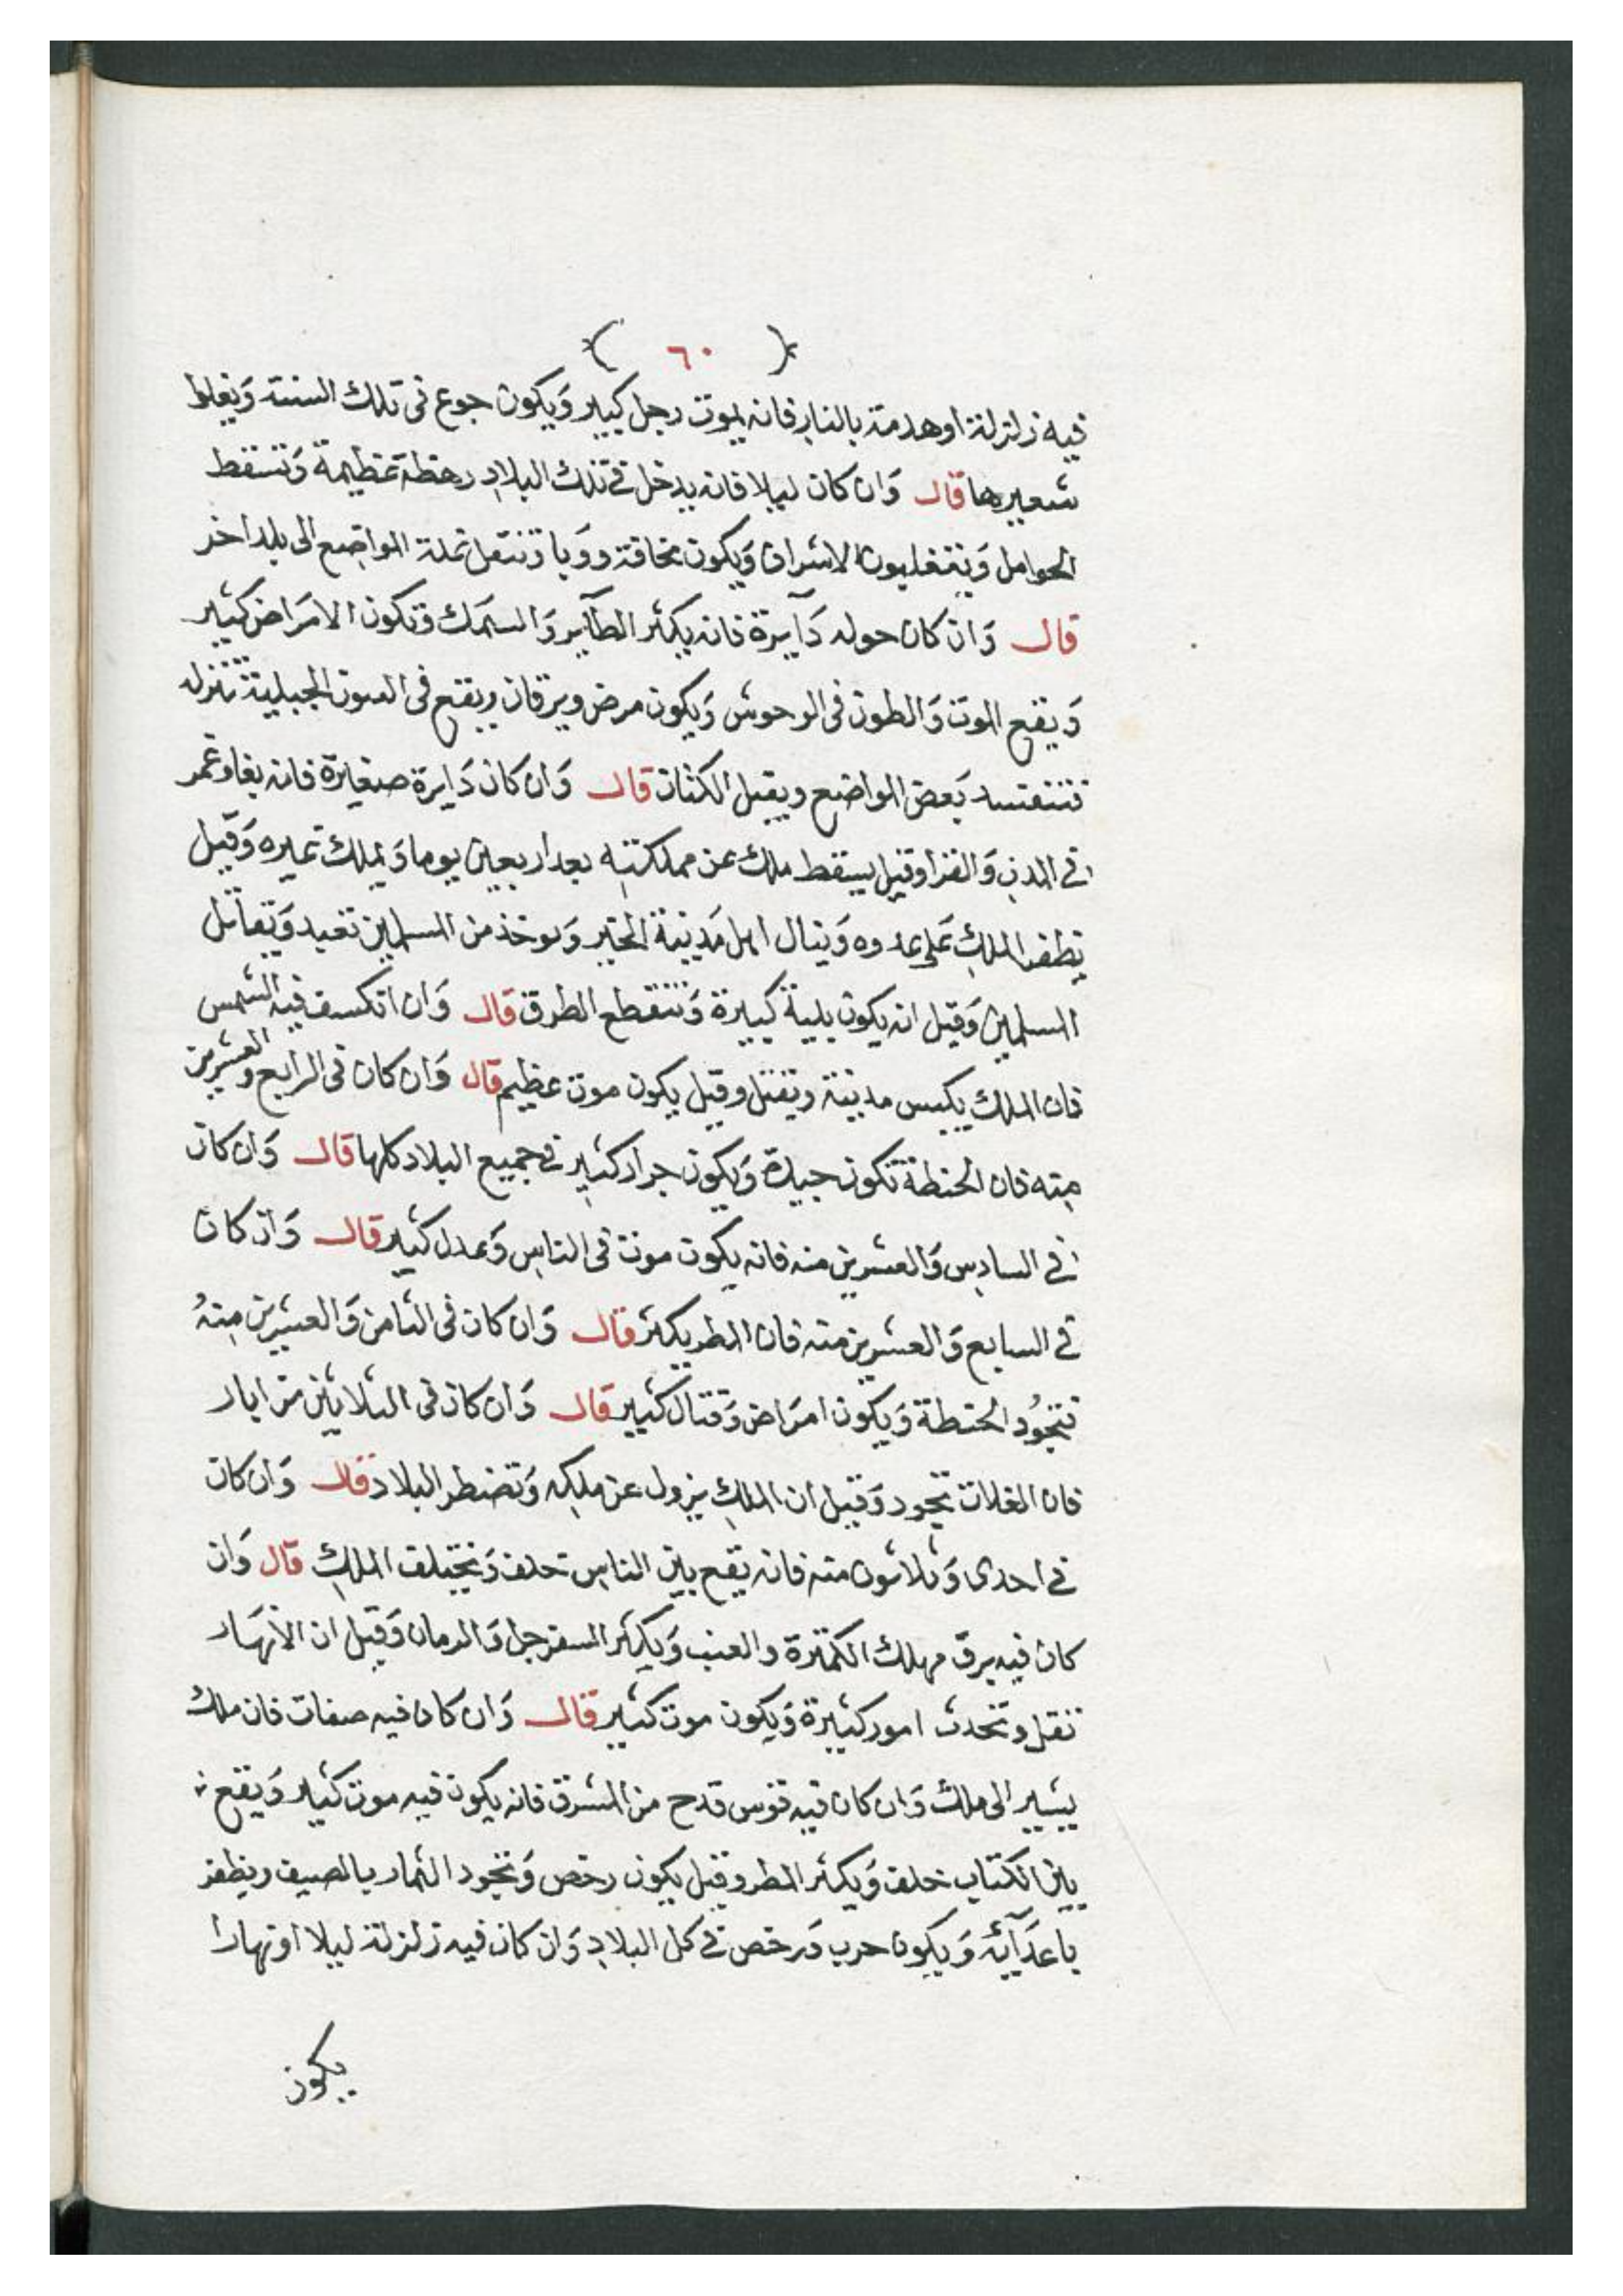 ( ٦٠ )
فيه زلزلة او هدمة بالنار فانه يموت رجل كبير وَيكون جوع فى تلك السنة وَيغلوا
شعيرها قال وَان كان ليلا فانه يدخل فى تلك البلاد رحظة عظيمة وَتسقط
الحوامل وَيتغلبون الاشراق وَيكون مخافة ووبا وَتنتقل تملة المواضع الى بلد اخر
قال وَان كان حوله دَآيرة فانه يكثر الطآير وَالسمك وَتكون الامرَاض كثير
وَيقع الموت وَالطون فى الوحوش وَيكون مرض ويرقان ويقع فى الجبلية تنزله
تتفسد بَعض المواضع ويقبل الكتان قال وَان كان دَايرة صغيرة فانه بغا وغمر
فى المدن وَالقرا وقيل يسقط ملك عن مملكته بعد اربعين يوما وَيملك غيره وَقيل
يظفر الملك عَلى عدوه وَينال اهل مَدينة الخير وَيوخذ من المسلمين تعبد وَتقاتل
المسلمين وَقيل انه يكون بلية كبيرة وَتنقطع الطرق قال وَان انكسف فيه الشمس
فان الملك يكبس مدينة ويقتل وقيل يكون موت عظيم قال وَان كان فى الرابع والعشرين
منه فان الحنطة تكون جيدة وَيكون جراد كثير فى جميع البلاد كلها قال وَان كان
فى السادس وَالعشرين منه فانه يكون موت فى الناس وَعدل كثير قال وَان كان
فى السابع وَالعشرين منه فان المطر يكثر قال وَان كان فى الثامن وَالعشرين مِنهُ
تتجوُد الحنطة وَيكون امرَاض وَقتال كثير قال وَان كان فى الثلاثين من ايار
فان الغلات تجود وَقيل ان الملك يزول عن ملكه وَتضطر البلاد قال وَان كان
فى احدى وَثلاثون منه فانه يقع بين الناس خلف وَيختلف الملك قال وَان
كان فيه برق مهلك الكمترة والعنب وَيكثر السفرجل وَالرمان وَقيل ان الانهَار
تقل وتحدث امور كثيرة وَيكون موت كثير قال وَان كان فيه صفات فان ملك
يسير الى ملك وَان كان فيه قوس قدح من المشرق فانه يكون فيه موت كثير وَيقع
بين الكتاب خلف وَيكثر المطر وقيل يكون رخص وَتجود الثمار بالصيف ويظفر
باعدَآئه وَيكون حرب وَرخص فى كل البلاد وَان كان فيه زلزلة ليلا او نهارا
يكون